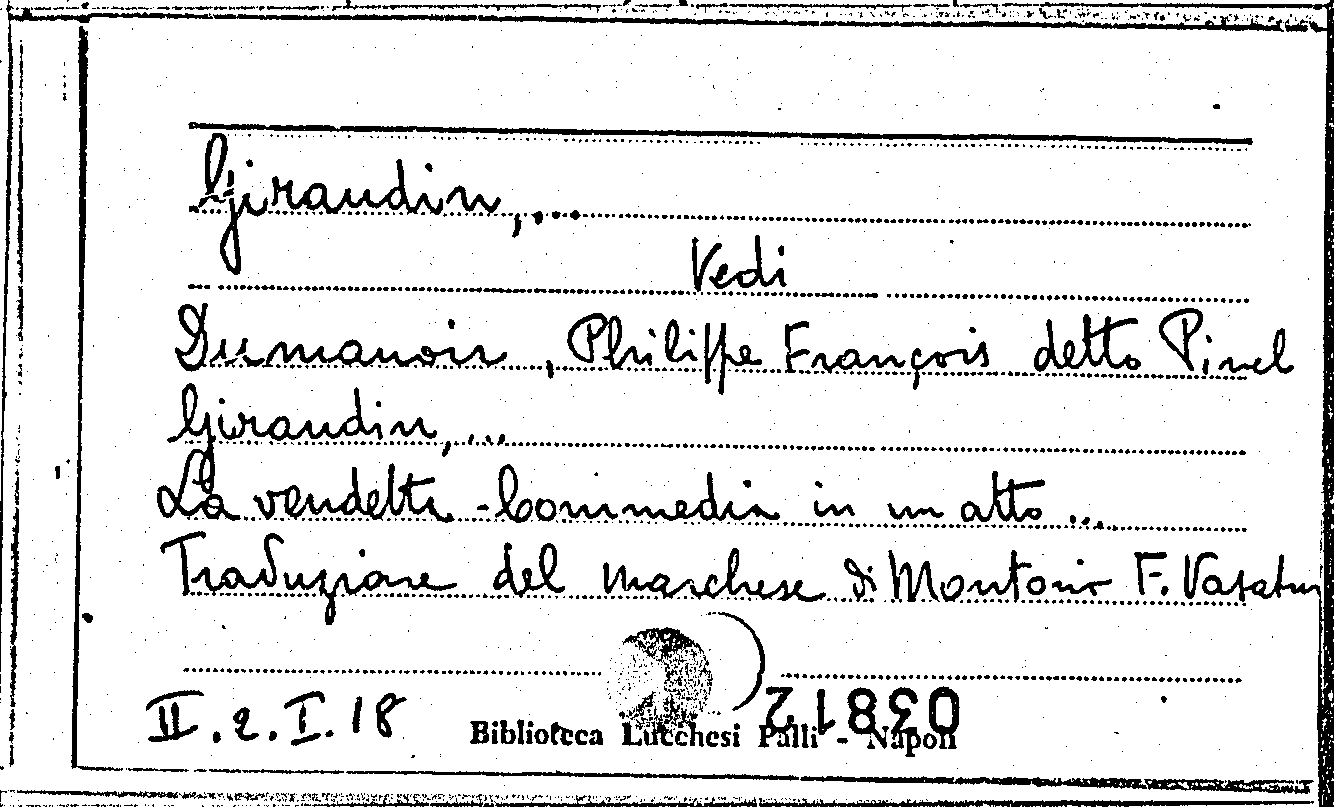 Giraudin, ...
Vedi
Dumanoir, Philippe François detto Pinel
Giraudin, ...
La vendetta - Commedia in un atto ...
Traduzione del marchese di Montorio F. Vasatur
II.2.I.18
03812
Biblioteca Lucchesi Palli - Napoli